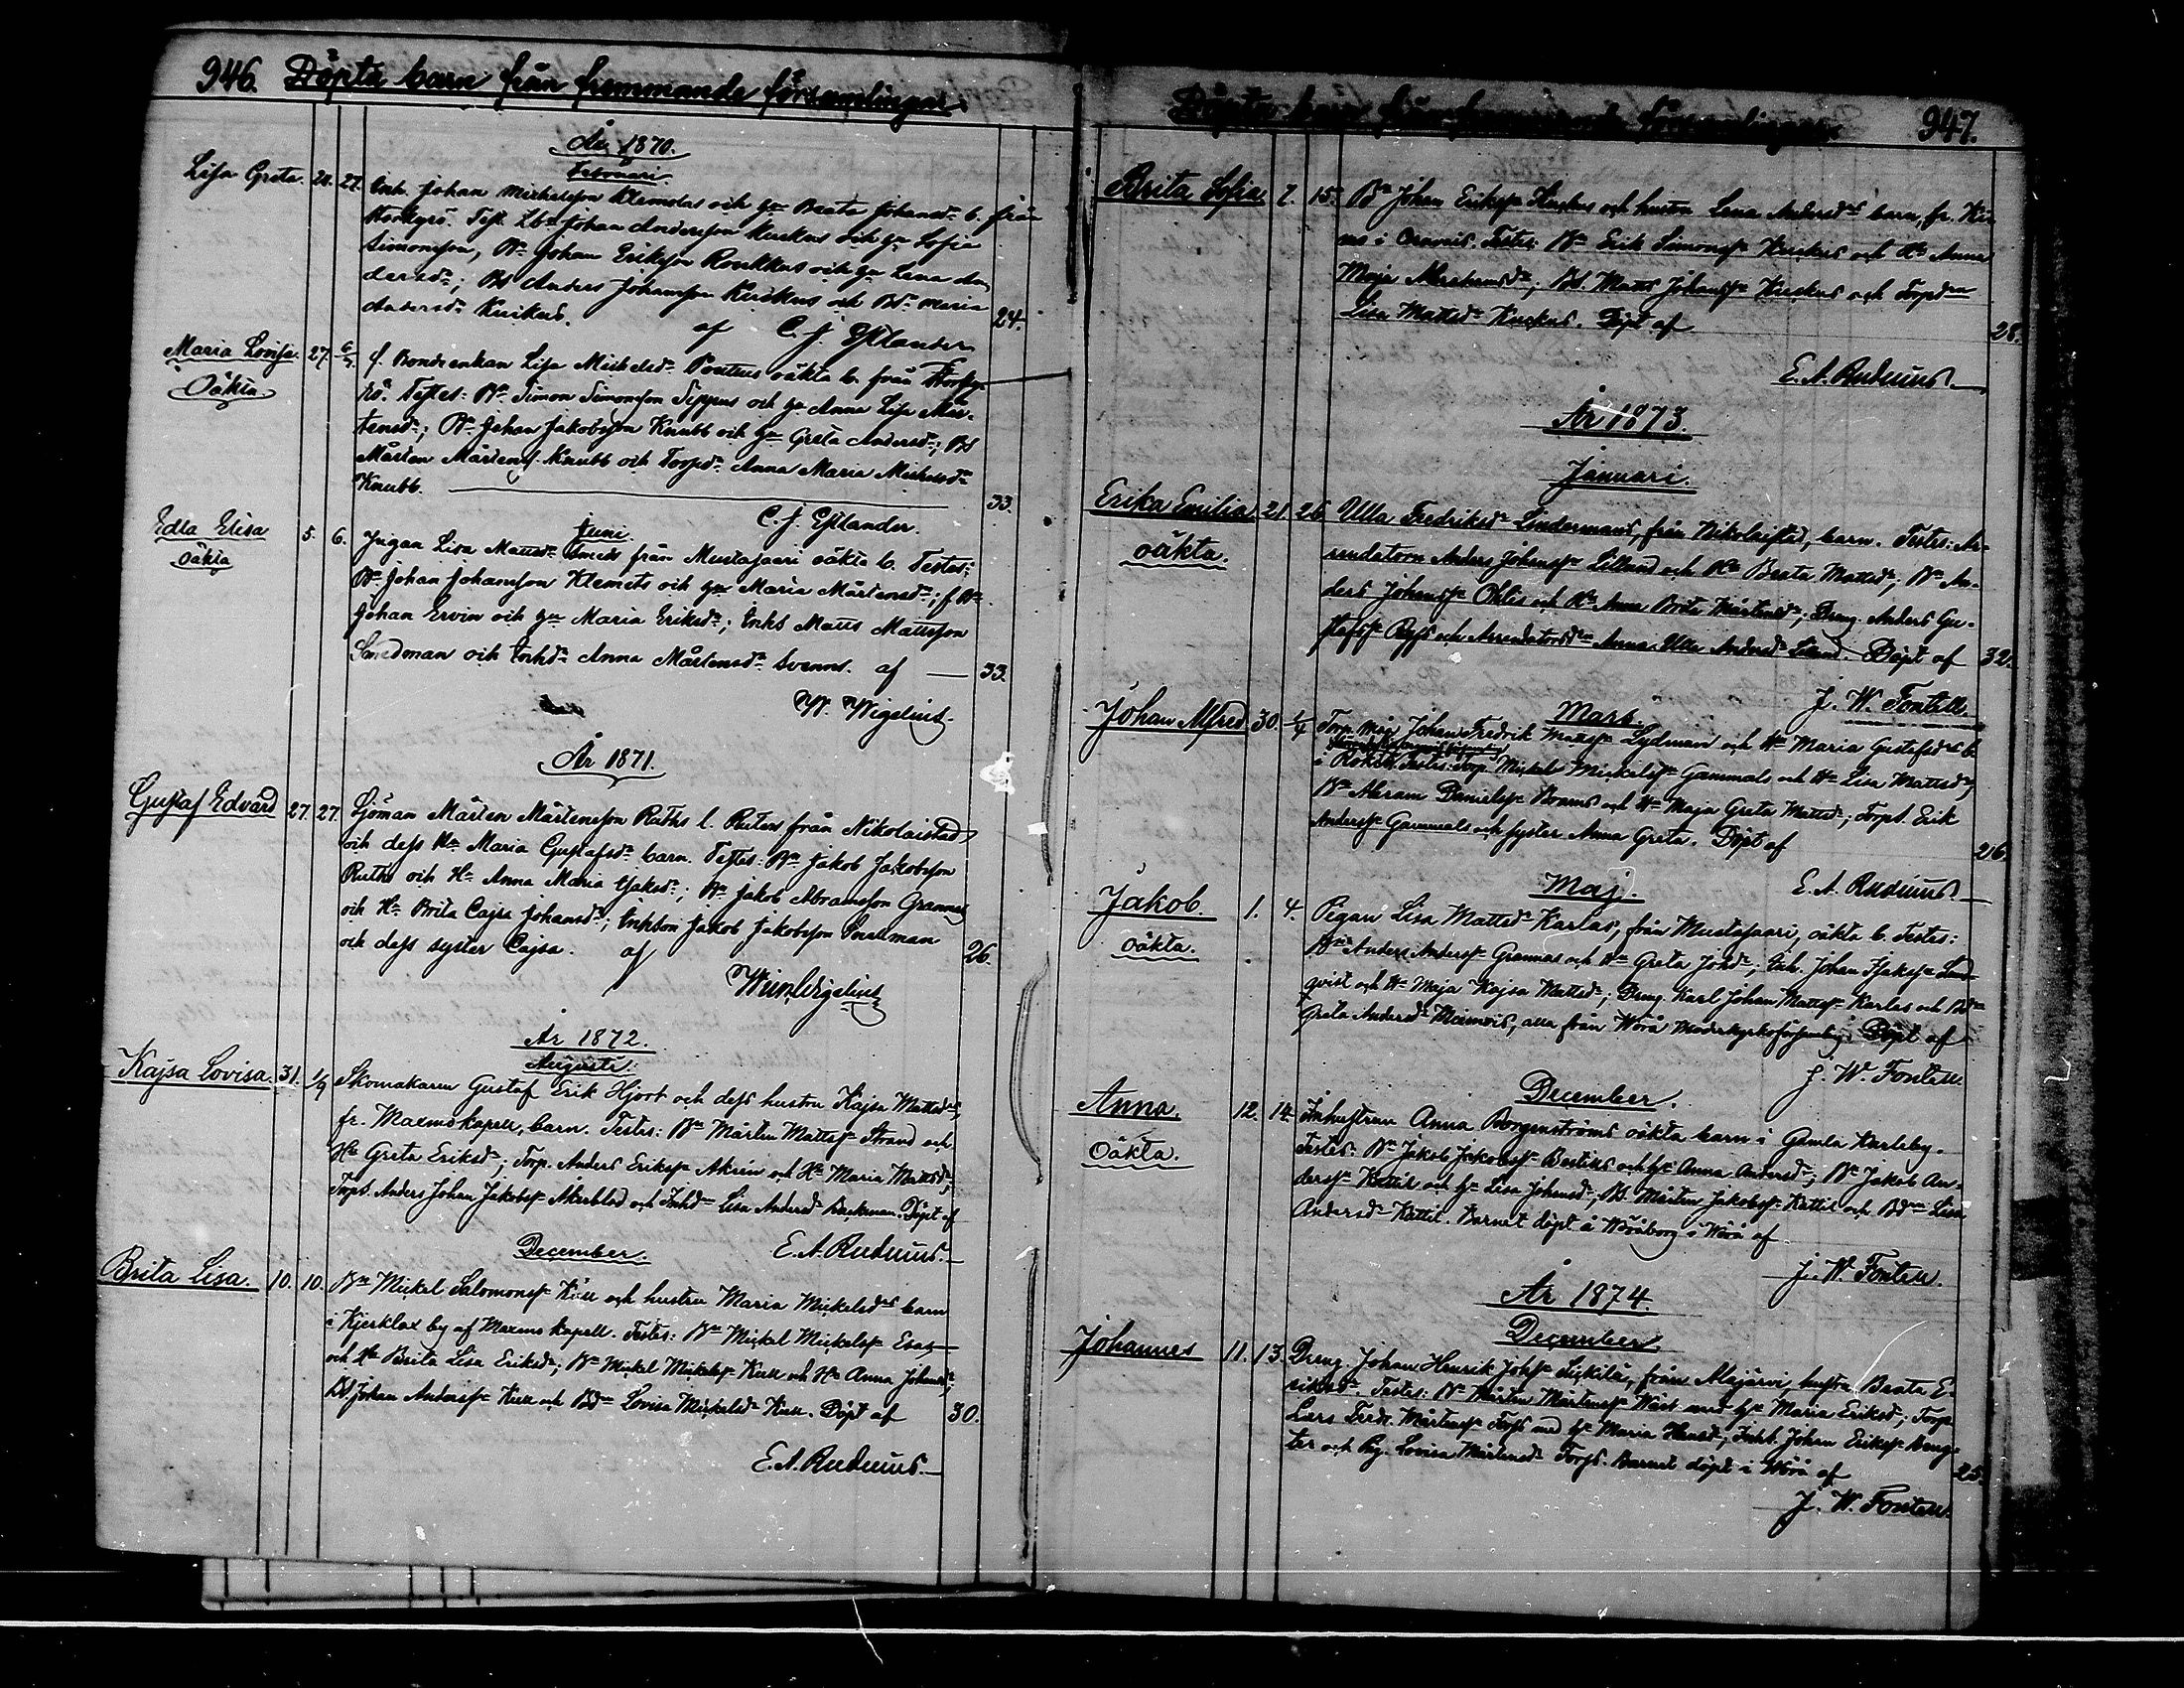 946. Döpta barn från fremmande församlingar.
År 1870.
Februari.
Lisa Greta. 21. 27. Inh. Johan Michelsson Klemolas och Hu Beata Johansdr b. från
Storkyrö. Test. Lbn Johan Andersson Kuckus och Hu Sofia
Simonsson, Bn Johan Eriksson Roukkus och Hu Lena An
dersdr; Bs Anders Johansson Kuckus och Bdr Maria
Andersdr Kuckus. af C. J. Estlander 24.
Maria Lovisa. 27. 6/3. f. Bondenkan Lisa Michelsdr Pouttus oäkta b. från Storky-
Oäkta. rö. Testes: Bn Simon Simonsson Sippus och Hu Anna Lisa Mår-
tensdr; Bn Johan Jakobsson Knubb och Hu Greta Andersdr; Bs
Mårten Mårtenss. Knubb och Torpdr Anna Maria Michelsdr
Knubb. 33.
C. J. Estlander.
Juni.
Edla Elisa 5. 6. Pigan Lisa Mattsdr Smeds från Mustasaari oäkta b. Testes:
oäkta Bn Johan Johansson Klemets och Hu Maria Mårtensdr; f. Bn
Johan Ervin och Hu Maria Eriksdr; Inhs Matts Mattsson
Smedman och Inhdr Anna Mårtensdr Svenns. af 33.
W. Wigelius.
År 1871.
Gustaf Edvard 27. 27. Sjöman Mårten Mårtensson Ruths l. Rutens från Nikolaistad
och dess Hu Maria Gustafsdr barn. Testes: Bn Jakob Jakobsson
Ruths och Hu Anna Maria Isaksdr; Bn Jakob Abramsson Grannas
och Hu Brita Cajsa Johansdr; Inhson Jakob Jakobsson Snellman
och dess syster Cajsa. af 26.
Wilh Wigelius
År 1872.
Augusti.
Kajsa Lovisa. 31. 1/9 Skomakaren Gustaf Erik Hjort och dess hustru Kajsa Mattsdrs,
fr. Maxmo kapell, barn. Testes: Bn Mårten Mattss. Strand och
Hu Greta Eriksdr; Torp. Anders Erikss. Akrén och Hu Maria Mattsdr;
Torps. Anders Johan Jakobss. Åkerblad och Inhdr Lisa Andersdr Backman. Döpt af
E. A. Rudnäs.
December.
Brita Lisa. 10. 10. Bn Mickel Salomonss. Kull och hustru Maria Mickelsdrs barn
i Kjerklax by af Maxmo kapell. Testes: Bn Mickel Mickelss. Esas
och Hu Brita Lisa Eriksdr; Bn Mickel Mickelss. Kull och Hu Anna Johansdr;
Bs Johan Anderss. Kull och Bdr Lovisa Mickelsdr Kull. Döpt af 30.
E. A. Rudnäs.
Döpta barn från fremmande församlingar. 947.
Brita Sofia 7. 15. Bn Johan Erikss. Kuckus och hustru Lena Andersdrs barn, fr.
i Oravais. Testes: Bn Erik Simonss. Kuckus och Hu Anna
Maja Abrahamsdr; Bs. Matts Johanss. Kuckus och Torpdrn
Lisa Mattsdr Kuckus. Döpt af 28.
E. A. Rudnäs.
År 1873.
Januari.
Erika Emilia 21 26 Ulla Fredriksdr Lindermans, från Nikolaistad, barn. Testes: Ar-
oäkta. rendatorn Anders Johanss. Lillund och Hu Beata Mattsdr; Bn An-
ders Johanss. Öhlis och Hu Anna Brita Mårtensdr; Dreng. Anders Gu-
stafss. Regfs och Arrendatorsdrn Anna Ulla Andersdr Lillund. Döpt af 32.
J. W. Fontell.
Mars.
Johan Alfred. 30. 1/4 Torp. måg Johan Fredrik Mattss. Lydman och Hu Maria Gustafsdrs b.
i Rökiö Testes: Torp. Mickel Mickelss. Gammals och Hu Lisa Mattsdr;
Bn Abram Danielss. Broms och Hu Maja Greta Mattsdr; Torps. Erik
Anderss. Gammals och syster Anna Greta. Döpt af 26.
E. A. Rudnäs.
Maj.
Jakob. 1. 4. Pigan Lisa Mattsdr Karlas, från Mustasaari, oäkta b. Testes:
oäkta. Bn Anders Anderss. Grannas och Hu Greta Johsdr; Inh. Johan Isakss. Lind-
qvist och Hu Maja Kajsa Mattsdr; Dreng. Karl Johan Mattss. Karlas och Bdr
Greta Andersdr Miemois, alla från Wörå moderkyrkoförsamling. Döpt af
J. W. Fontell.
December.
Anna. 12. 14. Inhustrun Anna Borgenströms oäkta barn i Gamla Karleby.
Oäkta. Testes: Bn Jakob Jakobss. Bertills och Hu Anna Andersdr; Bn Jakob An-
derss. Kattil och Hu Lisa Johansdr; Bs. Mårten Jakobss. Kattil och Bdrn Lisa
Andersdr Kattil. Barnet döpt å Wöråborg i Wörå af
J. W. Fontell.
År 1874.
December.
Johannes 11. 13. Dreng. Johan Henrik Johss. från Alajärvi, hustru Beata E-
riksdr. Testes: Bn Mårten Mårtenss. Wäst med Hu Maria Eriksdr; Torp.
Lars Ferdn. Mårtenss. Torfs med Hu Maria Hansdr; Inhs. Johan Erikss. Beng-
ter och Pig. Lovisa Mårtensdr Torfs. Barnet döpt i Wörå af 25.
J. W. Fontell.